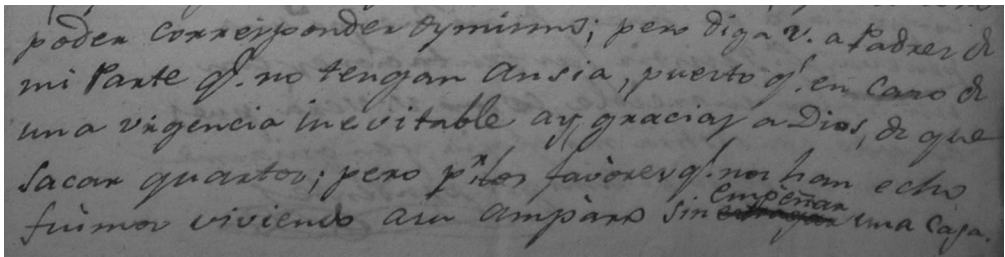 poder corresponder dymimo; pero diga v. a Padres de
mi Parte q.e no tengan ansia, puesto q.e en caso de
una vrgencia inevitable ay, gracias a Dios, de que
sacar quartos; pero p.r los favòres q.e nos han echo
fuimos viviendo asu ampàro sin empeñar una caja.